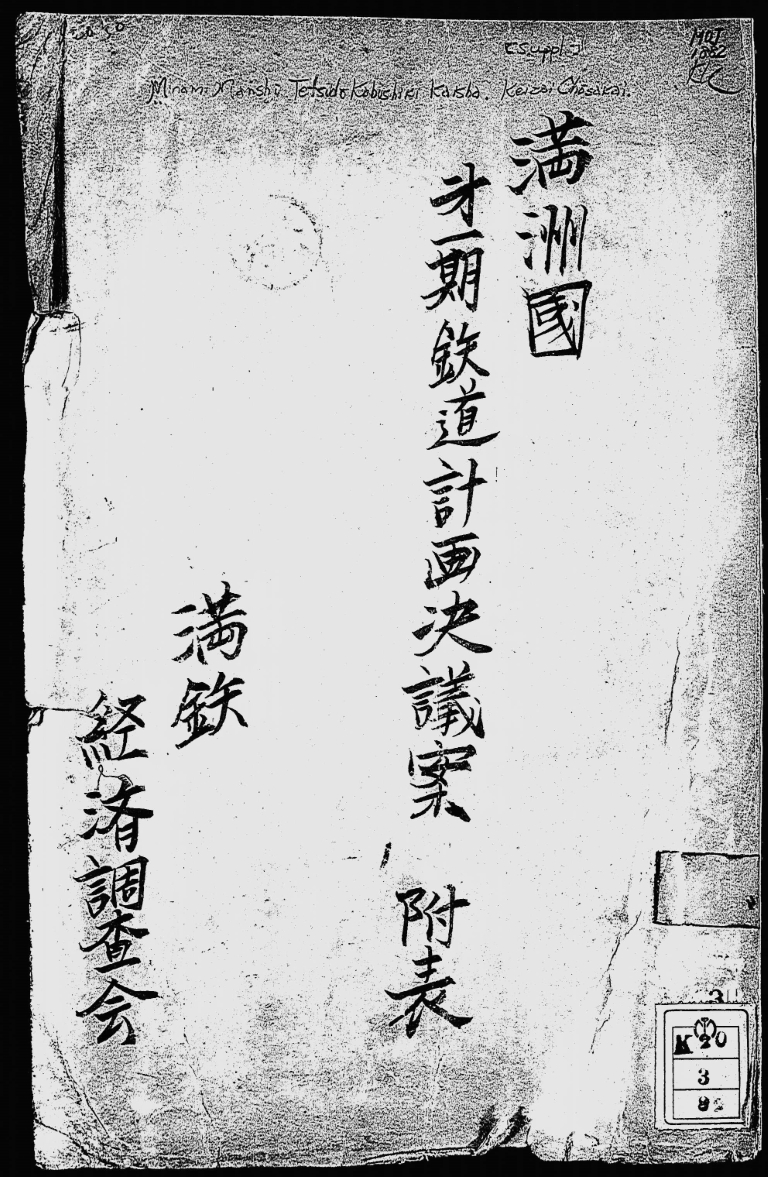 [Suppl.]
MOJ
1862
Minami Manshū Tetsudō Kabushiki Kaisha. Keizai Chōsakai.
満洲國
才一期鉄道計画決議案 附表
満鉄
経済調査会
3
K20
3